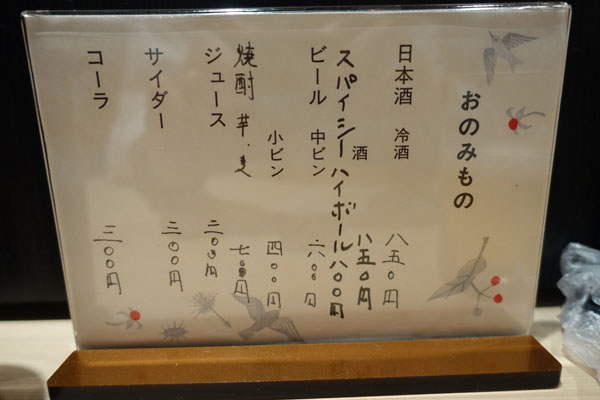 おのみもの
日本酒 冷酒 八五〇円
酒 八五〇円
スパイシーハイボール 八〇〇円
ビール 中ビン 六〇〇円
小ビン 四〇〇円
焼酎 芋・麦 七〇〇円
ジュース 二〇〇円
サイダー 三〇〇円
コーラ 三〇〇円